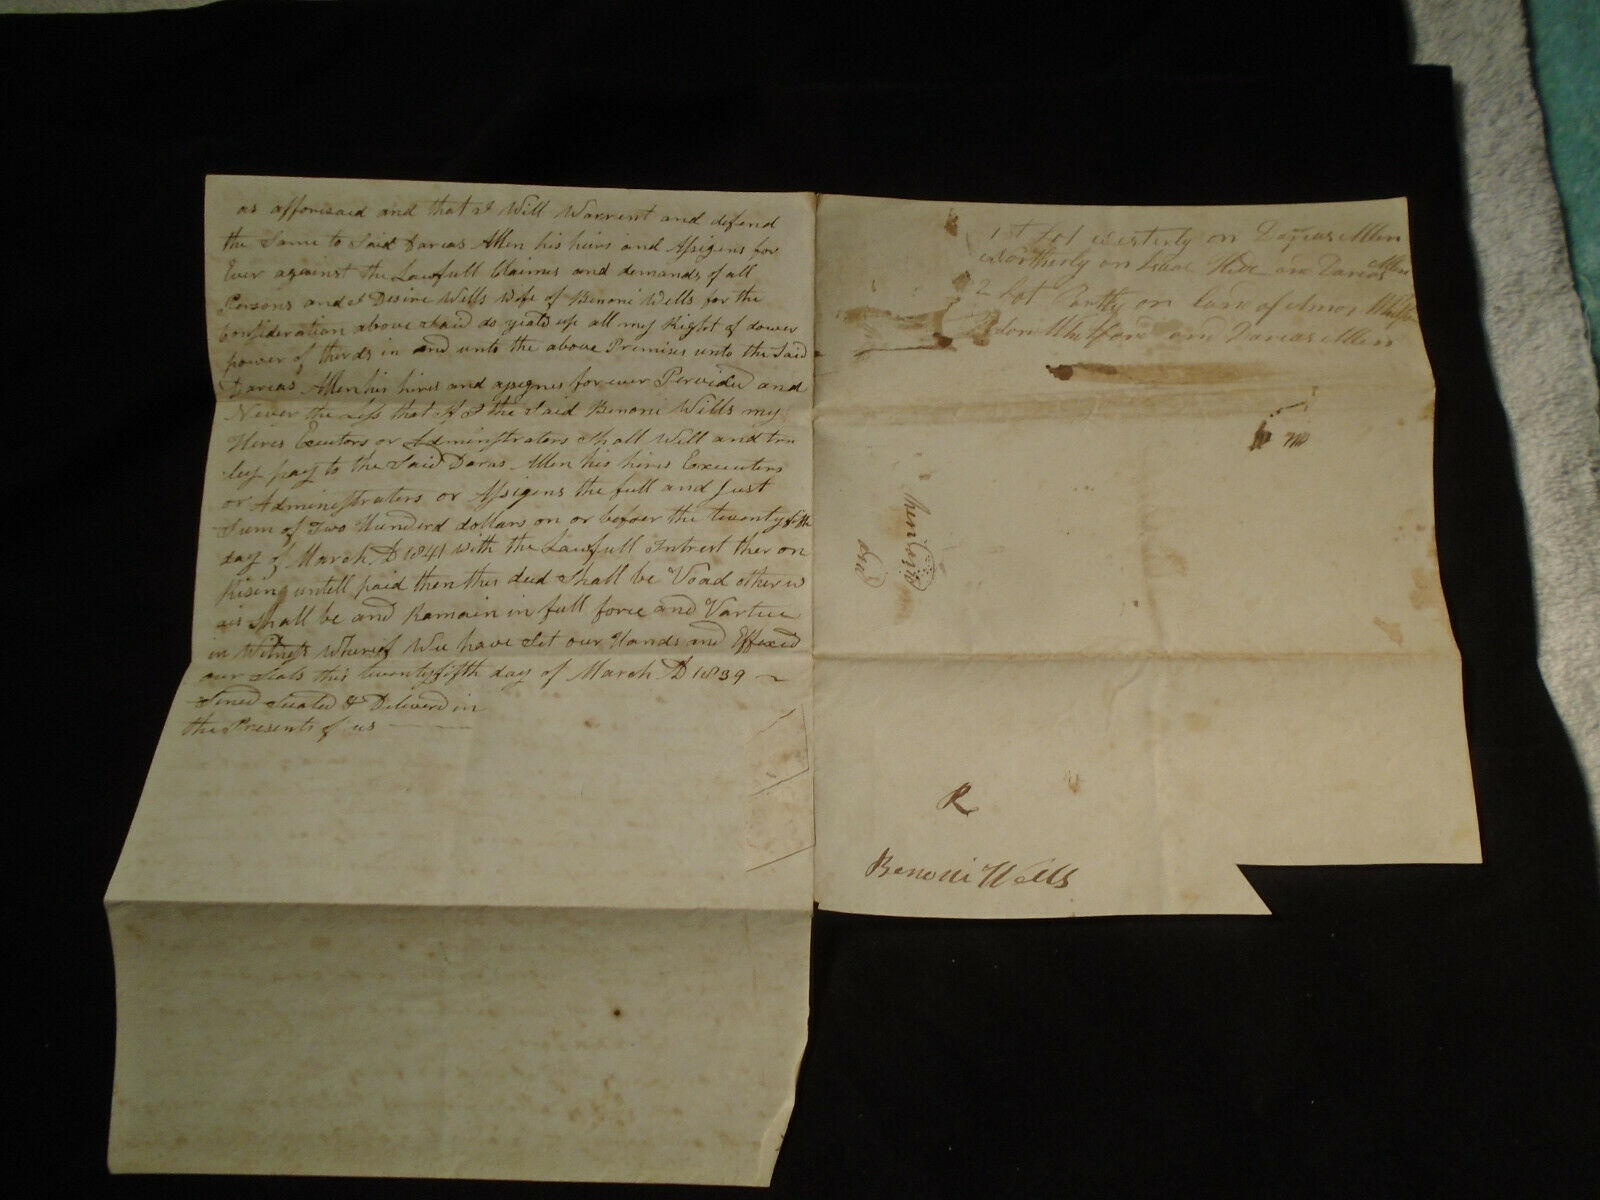 as afforesaid and that I Will Warrent and defend
the Same to Said Darias Allen his heirs and Assigens for
Ever against the Lawfull Claimes and demands of all
Persons and I Desire Wells Wife of Benoni Wells for the
Consideration above Said do yeald up all my Right of dower
power of therds in and unto the above Premises unto the Said
Darias Allen his hires and assignes for ever Pervided and
Never the Less that If I the Said Benoni Wills my
Hires Exutors or Adminstraters Shall Will and tru
ley pay to the Said Daras Allen his hires Executers
or Adminestraters or Assigens the full and Just
Sum of Two Hunderd dollars on or befoer the twenty fifth
day of March AD 1841 with the Lawfull Intrest ther on
Rising untell paid then this deed Shall be Voad other w
ais Shall be and Ramain in full force and Vartue
in Witness Whereof Wee have Set our Hands and Effexed
our Seals this twentyfifth day of March AD 1839
Sined Sealed & Deliverd in
the Presents of us
1st Lot Westerly on Darias Allen
Northerly on Isaac Hide on Darias Allen
2 Lot Partly on land of Amos
Whitford on Darias Allen
R
Benoni Wells